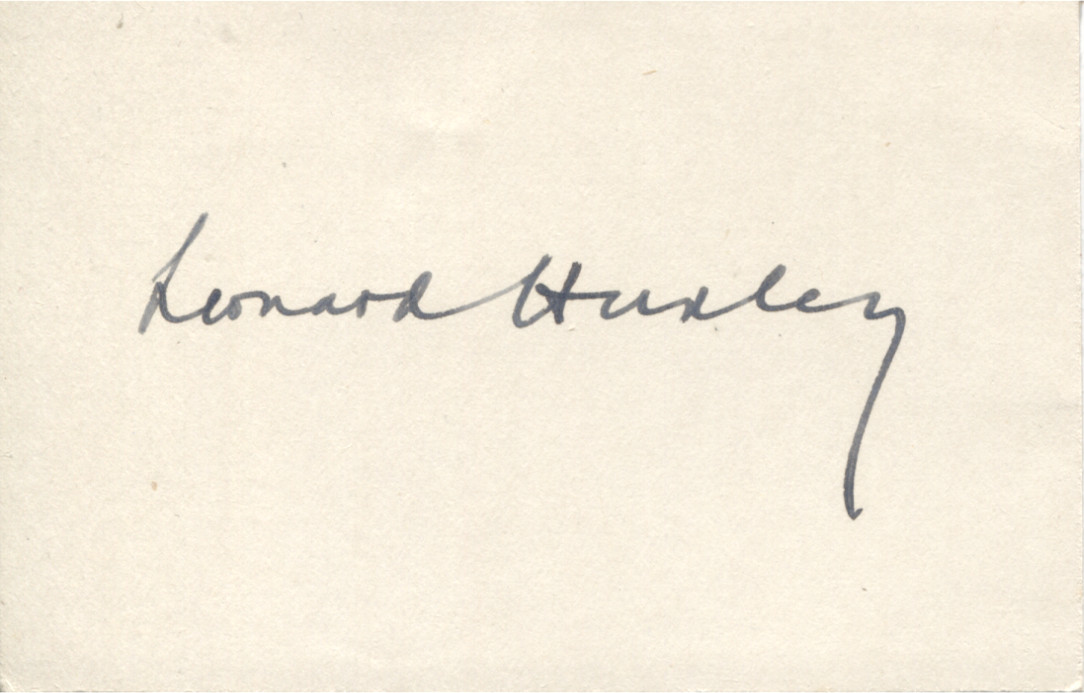 Leonard Huxley